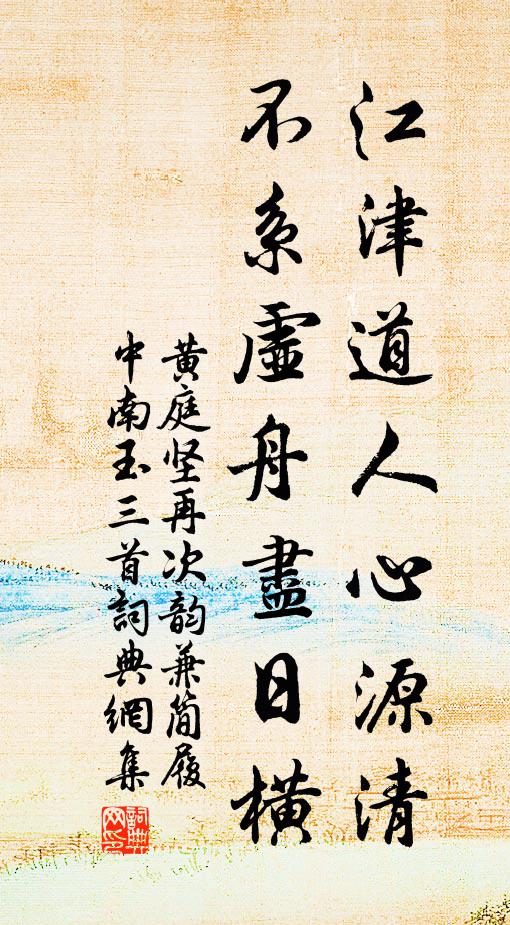 江津道人心源清
不系虛舟盡日橫
黄庭坚再次韵兼简履
中南玉三首詞典網集
詞典網